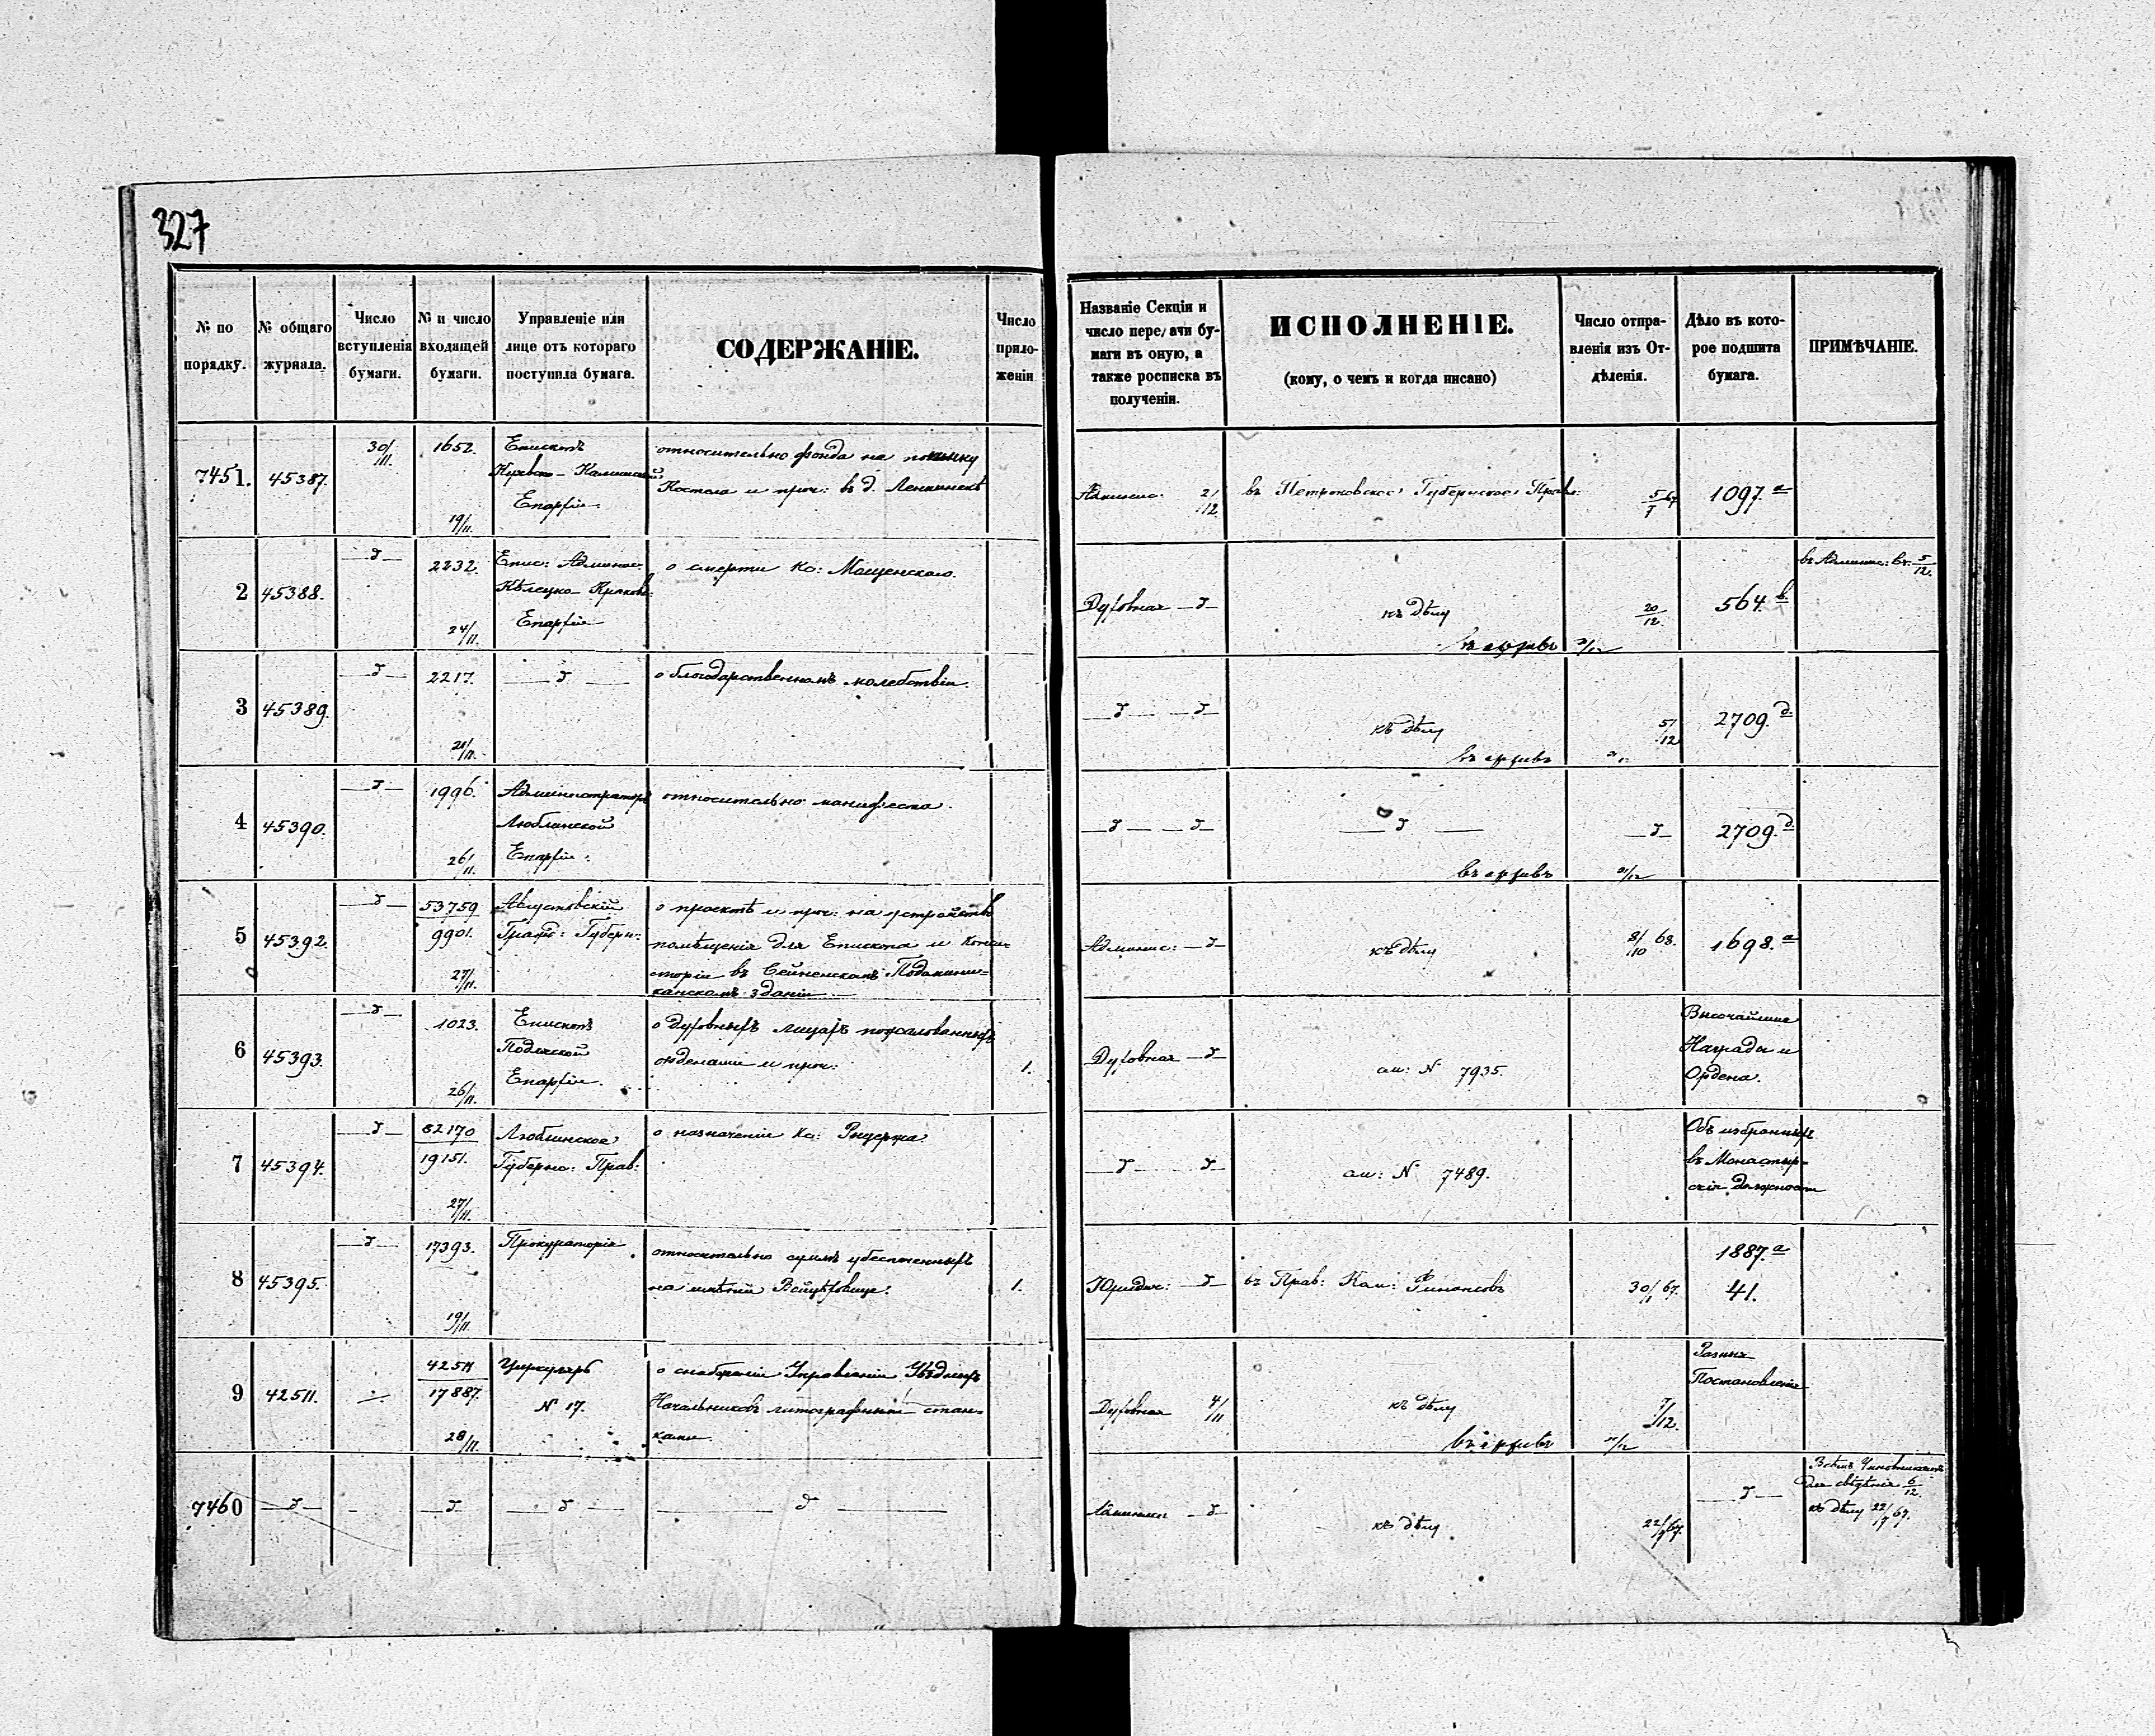 327
№ по порядку.
№ общаго журнала.
Число вступленія бумаги.
№ и число входящей бумаги.
Управленіе или лице отъ котораго поступила бумага.
СОДЕРЖАНІЕ.
Число приложеніи
Названіе Секціи и число передачи бумаги въ оную, а также росписка въ полученіи.
ИСПОЛНЕНІЕ.
(кому, о чемъ и когда писано)
Число отправленія изъ Отдѣленія.
Дѣло въ которое подшита бумага.
ПРИМѢЧАНІЕ.
7451. 45387. 30/III. 1652. Епископъ относительно фонда на починку
Куявско-Калишской Костела и проч: въ д.
Епархіи
19/II.
21/12 въ Петроковское Губернское Правл: 5/I 67 1097.а
2 45388. —d— 2232. Епис: Админис: о смерти Кс: Мощенскаго.
Кѣлецко-Краков:
24/II. Епархіи
Духовная —d— къ дѣлу 20/12. 564.в. въ Админис: въ: 5/12.
въ архивъ
3 45389. —d— 2217. —d— о благодарственномъ молебствіи.
—d— —d— къ дѣлу 5/12 2709.д.
въ архивъ
4 45390. —d— 1996. Администраторъ относительно манифеста.
Люблинской
26/II. Епархіи.
—d— —d— —d— —d— 2709.д
въ архивъ 21/12
5 45392. —d— 53759/9901. Августовскій о проектѣ и проч: на устройство
Гражд: Губерн: помѣщенія для Епископа и Конси-
27/II. сторіи въ Сейненскомъ Подомини-
канскомъ зданіи
Админис: —d— къ дѣлу 8/10 68. 1698.а
6 45393. —d— 1023. Епископъ о духовныхъ лицахъ пожалованныхъ
Подляской орденами и проч: 1.
26/II. Епархіи.
Духовная —d— ам: № 7935. Высочайшие
Награды и
Ордена.
7 45394. —d— 82170/19151. Люблинское о назначеніи Кс:
Губернс: Прав:
27/II.
—d— —d— ам: № 7489. Объ избранныхъ
въ Монастыр-
скія должности
8 45395. —d— 17393. Прокураторія относительно суммъ обеспеченныхъ
на имѣніи 1.
19/II.
Юридич: —d— въ Прав: Ком: Финансовъ 30/II 67. 1887.а
41.
9 42511. 42511/17887. Циркуляръ о снабженіи Управленій Уѣздныхъ
№ 17. Начальниковъ литографными стан-
28/II. ками.
Духовная 4/II къ дѣлу 7/12. Разныя
Постановленія
въ архивъ
7460 —d— - —d— —d— —d—
—d— къ дѣлу 22/I 67. —d— Всѣмъ Чиновникамъ
для свѣдѣнія 6/12.
къ дѣлу 22/I 67.